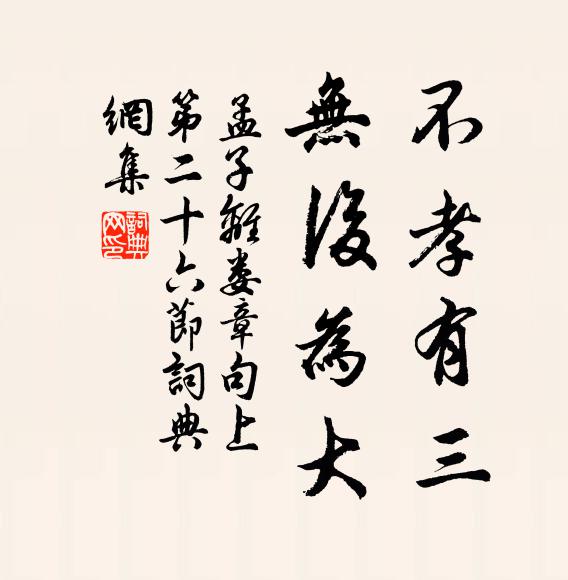 不孝有三
無後為大
孟子離婁章句上
第二十六節詞典
網集
詞典网印